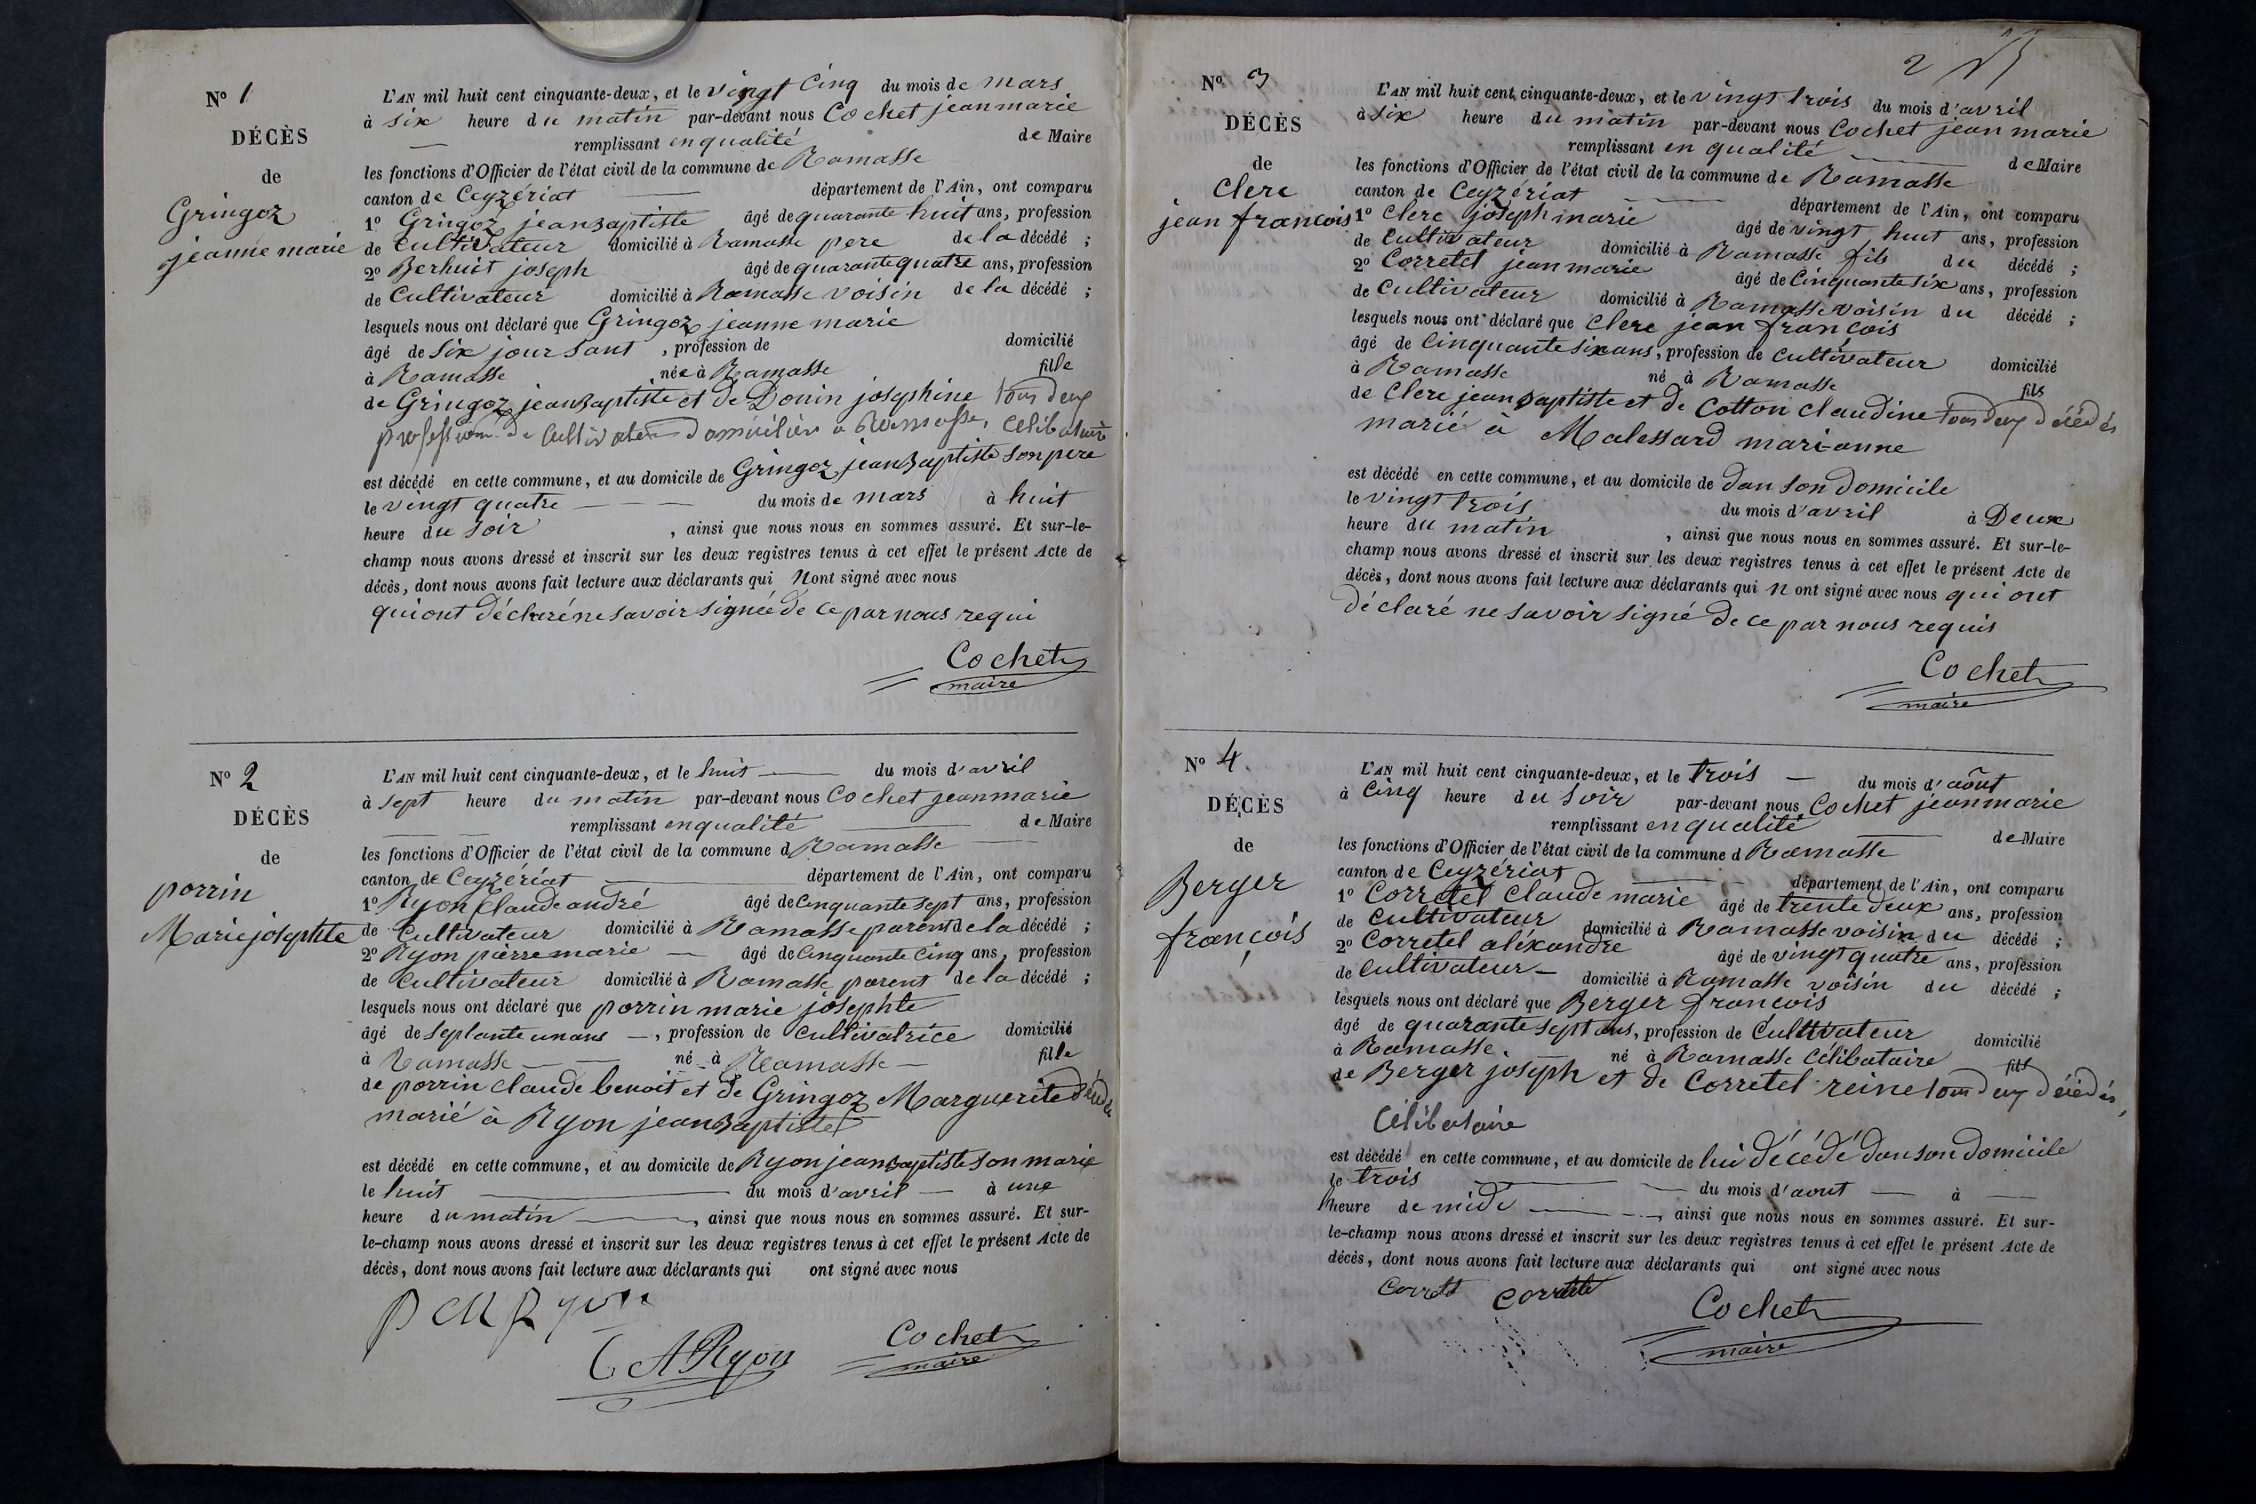 N° 1
DÉCÈS
de
Gringoz
jeanne marie
L'AN mil huit cent cinquante-deux, et le vingt Cinq du mois de mars
à six heure du matin par-devant nous Cochet jean marie
remplissant en qualité de Maire
les fonctions d'Officier de l'état civil de la commune de Ramasse
canton de Ceyzériat département de l'Ain, ont comparu
1° Gringoz jean Baptiste âgé de quarante huit ans, profession
de Cultivateur domicilié à Ramasse pere de la décédé ;
2° Berhuit joseph âgé de quarante quatre ans, profession
de Cultivateur domicilié à Ramasse voisin de la décédé ;
lesquels nous ont déclaré que Gringoz jeanne marie
âgé de six jour sant , profession de domicilié
à Ramasse née à Ramasse fille
de Gringoz jean Baptiste et de Donin josephine tous deux
profession de Cultivateur domiciliés a Ramasse, Célibataire
est décédé en cette commune, et au domicile de Gringoz jean Baptiste son pere
le vingt quatre du mois de mars à huit
heure du soir , ainsi que nous nous en sommes assuré. Et sur-le-
champ nous avons dressé et inscrit sur les deux registres tenus à cet effet le présent Acte de
décès, dont nous avons fait lecture aux déclarants qui Nont signé avec nous
qui ont déclaré ne savoir signée de ce par nous requi
Cochet
maire
N° 2
DÉCÈS
de
porrin
Marie josephte
L'AN mil huit cent cinquante-deux, et le huit du mois d'avril
à sept heure du matin par-devant nous Cochet jean marie
remplissant en qualité de Maire
les fonctions d'Officier de l'état civil de la commune d Ramasse
canton de Ceyzériat département de l'Ain, ont comparu
1° Ryon Claude andré âgé de Cinquante sept ans, profession
de Cultivateur domicilié à Ramasse parent de la décédé ;
2° Ryon pierre marie âgé de Cinquante Cinq ans, profession
de Cultivateur domicilié à Ramasse parent de la décédé ;
lesquels nous ont déclaré que porrin marie josephte
âgé de septante un ans , profession de Cultivatrice domicilié
à Ramasse né à Ramasse fille
de porrin Claude benoit et de Gringoz Marguerite
marié à Ryon jean Baptiste
est décédé en cette commune, et au domicile de Ryon jean Baptiste son marie
le huit du mois d'avril à une
heure du matin , ainsi que nous nous en sommes assuré. Et sur-
le-champ nous avons dressé et inscrit sur les deux registres tenus à cet effet le présent Acte de
décès, dont nous avons fait lecture aux déclarants qui ont signé avec nous
Ryon
C A Ryon
Cochet
maire
2
N° 3
DÉCÈS
de
Clerc
jean francois
L'AN mil huit cent cinquante-deux, et le vingt trois du mois d'avril
à six heure du matin par-devant nous Cochet jean marie
remplissant en qualité de Maire
les fonctions d'Officier de l'état civil de la commune de Ramasse
canton de Ceyzériat département de l'Ain, ont comparu
1° Clerc joseph marie âgé de vingt huit ans, profession
de Cultivateur domicilié à Ramasse fils du décédé ;
2° Corretel jean marie âgé de Cinquante six ans, profession
de Cultivateur domicilié à Ramasse voisin du décédé ;
lesquels nous ont déclaré que Clerc jean françois
âgé de Cinquante six ans, profession de Cultivateur domicilié
à Ramasse né à Ramasse fils
de Clerc jean Baptiste et de Cotton Claudine tous deux décédés
marié à Malessard marianne
est décédé en cette commune, et au domicile de dan son domicile
le vingt trois du mois d'avril à Deux
heure du matin , ainsi que nous nous en sommes assuré. Et sur-le-
champ nous avons dressé et inscrit sur les deux registres tenus à cet effet le présent Acte de
décès, dont nous avons fait lecture aux déclarants qui n ont signé avec nous qui ont
déclaré ne savoir signé de ce par nous requis
Cochet
maire
N° 4
DÉCÈS
de
Berger
françois
L'AN mil huit cent cinquante-deux, et le trois du mois d'août
à Cinq heure du soir par-devant nous Cochet jean marie
remplissant en qualité de Maire
les fonctions d'Officier de l'état civil de la commune d Ramasse
canton de Ceyzériat département de l'Ain, ont comparu
1° Corretel Claude marie âgé de trente deux ans, profession
de Cultivateur domicilié à Ramasse voisin du décédé ;
2° Corretel aléxandre âgé de vingt quatre ans, profession
de Cultivateur domicilié à Ramasse voisin du décédé ;
lesquels nous ont déclaré que Berger francois
âgé de quarante sept ans, profession de Cultivateur domicilié
à Ramasse né à Ramasse Célibataire fils
de Berger joseph et de Corretel reine tous deux décédés,
Célibataire
est décédé en cette commune, et au domicile de lui décédé dan son domicile
le trois du mois d'aout à
heure de midi , ainsi que nous nous en sommes assuré. Et sur-
le-champ nous avons dressé et inscrit sur les deux registres tenus à cet effet le présent Acte de
décès, dont nous avons fait lecture aux déclarants qui ont signé avec nous
Cochet
maire